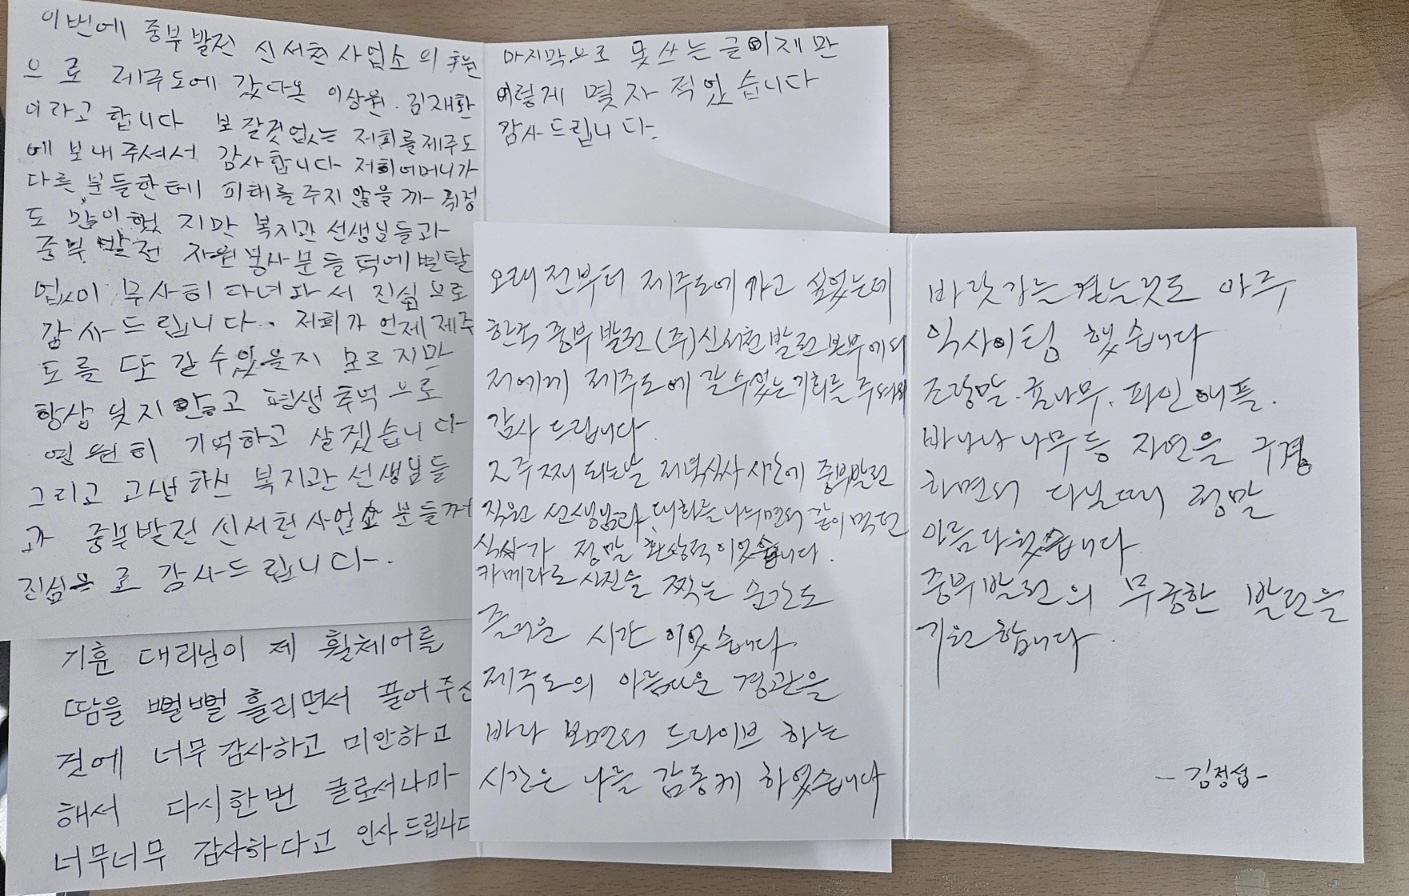 이번에 중부발전 신서천사업소의 후원
으로 제주도에 갔다온 이상원. 김재환
이라고 합니다 보잘것없는 저희를제주도
에 보내주셔서 감사합니다 저희어머니가
다른 분들한테 피해를주지 않을까 걱정
도 많이 했지만 복지관 선생님들과
중부발전 자원봉사분들 덕에 별탈
없이 무사히 다녀와서 진심으로
감사드립니다. 저희가 언제 제주
도를 또 갈수있을지 모르지만
항상 잊지 안고 평생 추억으로
영원히 기억하고 살겠습니다
그리고 고생하신 복지관 선생님들
과 중부발전 신서천사업소 분들께
진심으로 감사드립니다.
마지막으로 못쓰는 글이지만
이렇게 몇자 적었습니다
감사드립니다.
기훈 대리님이 제 휠체어를
땀을 뻘뻘 흘리면서 끌어주신
것에 너무 감사하고 미안하고
해서 다시한번 글로서나마
너무너무 감사하다고 인사드립니다
오래전부터 제주도에 가고 싶었는데
한국중부발전(주)신서천발전본부에서
저에게 제주도에 갈수있는기회를 주셔서
감사드립니다.
2주째 되는날 저녁식사 시간에 중부발전
직원 선생님과 대화를 나누면서 같이 먹던
식사가 정말 환상적이었습니다.
카메라로 사진을 찍는 순간도
즐거운 시간 이었습니다.
제주도의 아름다운 경관을
바라 보면서 드라이브 하는
시간은 나를 감동케 하였습니다
바닷가를 걷는것도 아주
익사이팅 했습니다
조랑말.귤나무.파인애플.
바나나나무등 자연을 구경
하면서 다닐때 정말
아름다웠습니다.
중부발전의 무궁한 발전을
기원합니다.
-김정섭-